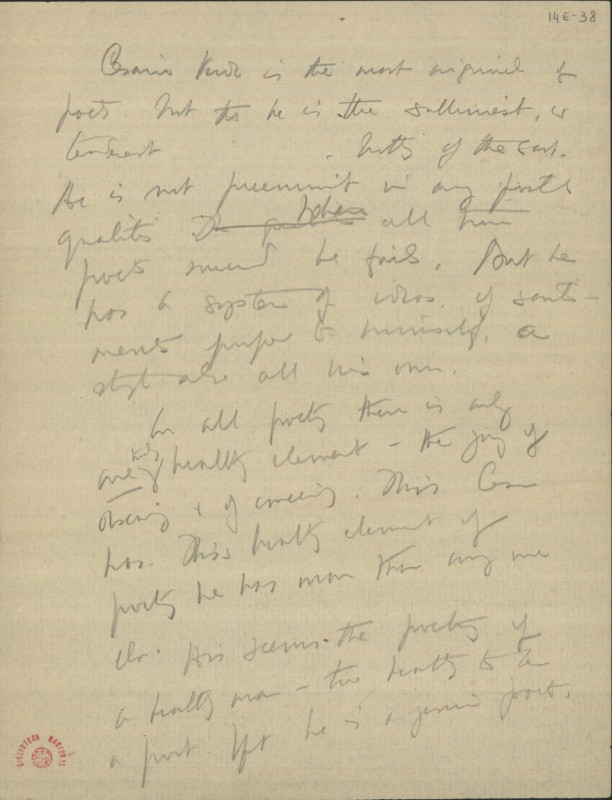 14E-38
Cesario Verde is the most original of
poets. Not that he is the sublimest, or
tenderest . Nothing of the sort.
He is not preeminent in any poetic
qualities Where all
poets succeed he fails. But he
has a system of ideas, of senti-
ments proper to himself, a
style also all his own.
In all poetry there is only
one truly healthy element — the joy of
observing & of conceiving. This Cesario
has. This healthy element of
poetry he has more than any one
else. His seems the poetry of
a healthy man — too healthy to be
a poet. Yet he is a genuine poet.
BIBLIOTECA NACIONAL